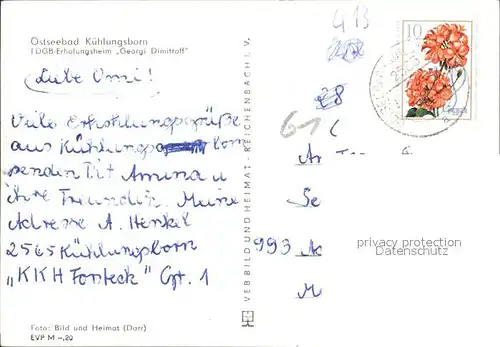 Ostseebad Kühlungsborn
FDGB-Erholungsheim „Georgi Dimitroff"
Liebe Omi!
Viele Erhohlungsgrüße
aus Kühlungsborn
senden Dit Amina u
ihre Freundin. Meine
Adresse A. Henkel
2565 Kühlungborn
„KKH Fonteck" Gr. 1
Foto: Bild und Heimat (Darr)
EVP M -,20
VEB BILD UND HEIMAT · REICHENBACH I. V.
413
28
61
10
Ar
Se
993 Ac
M
privacy protection
Datenschutz